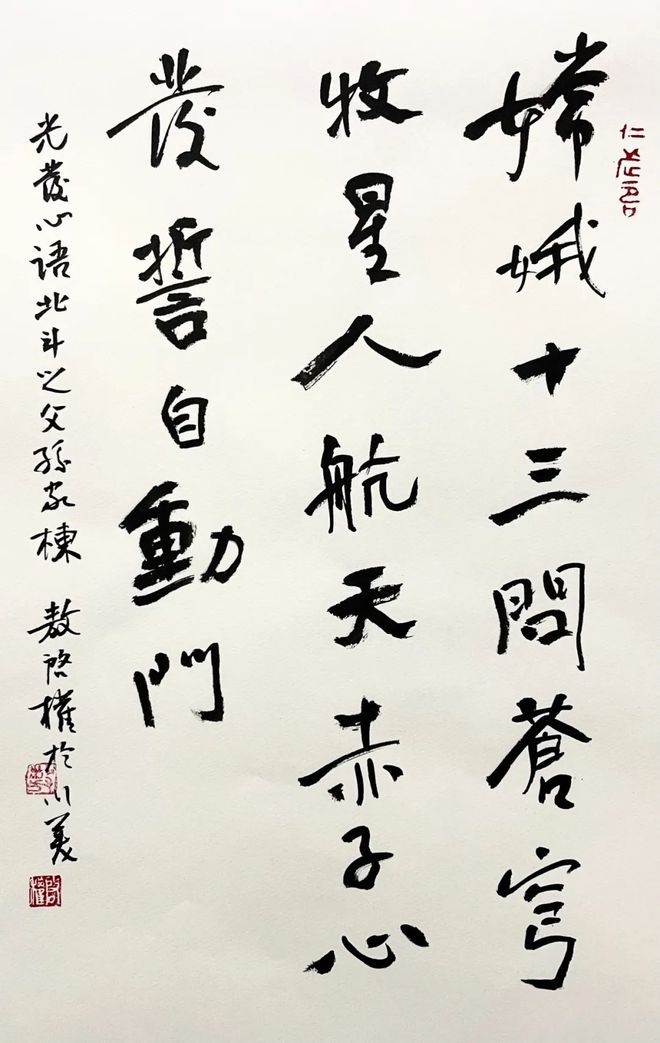 嫦娥十三問蒼穹
牧星人航天赤子心
發誓自動門
光發心語北斗之父孫家棟 敖啓權於川美